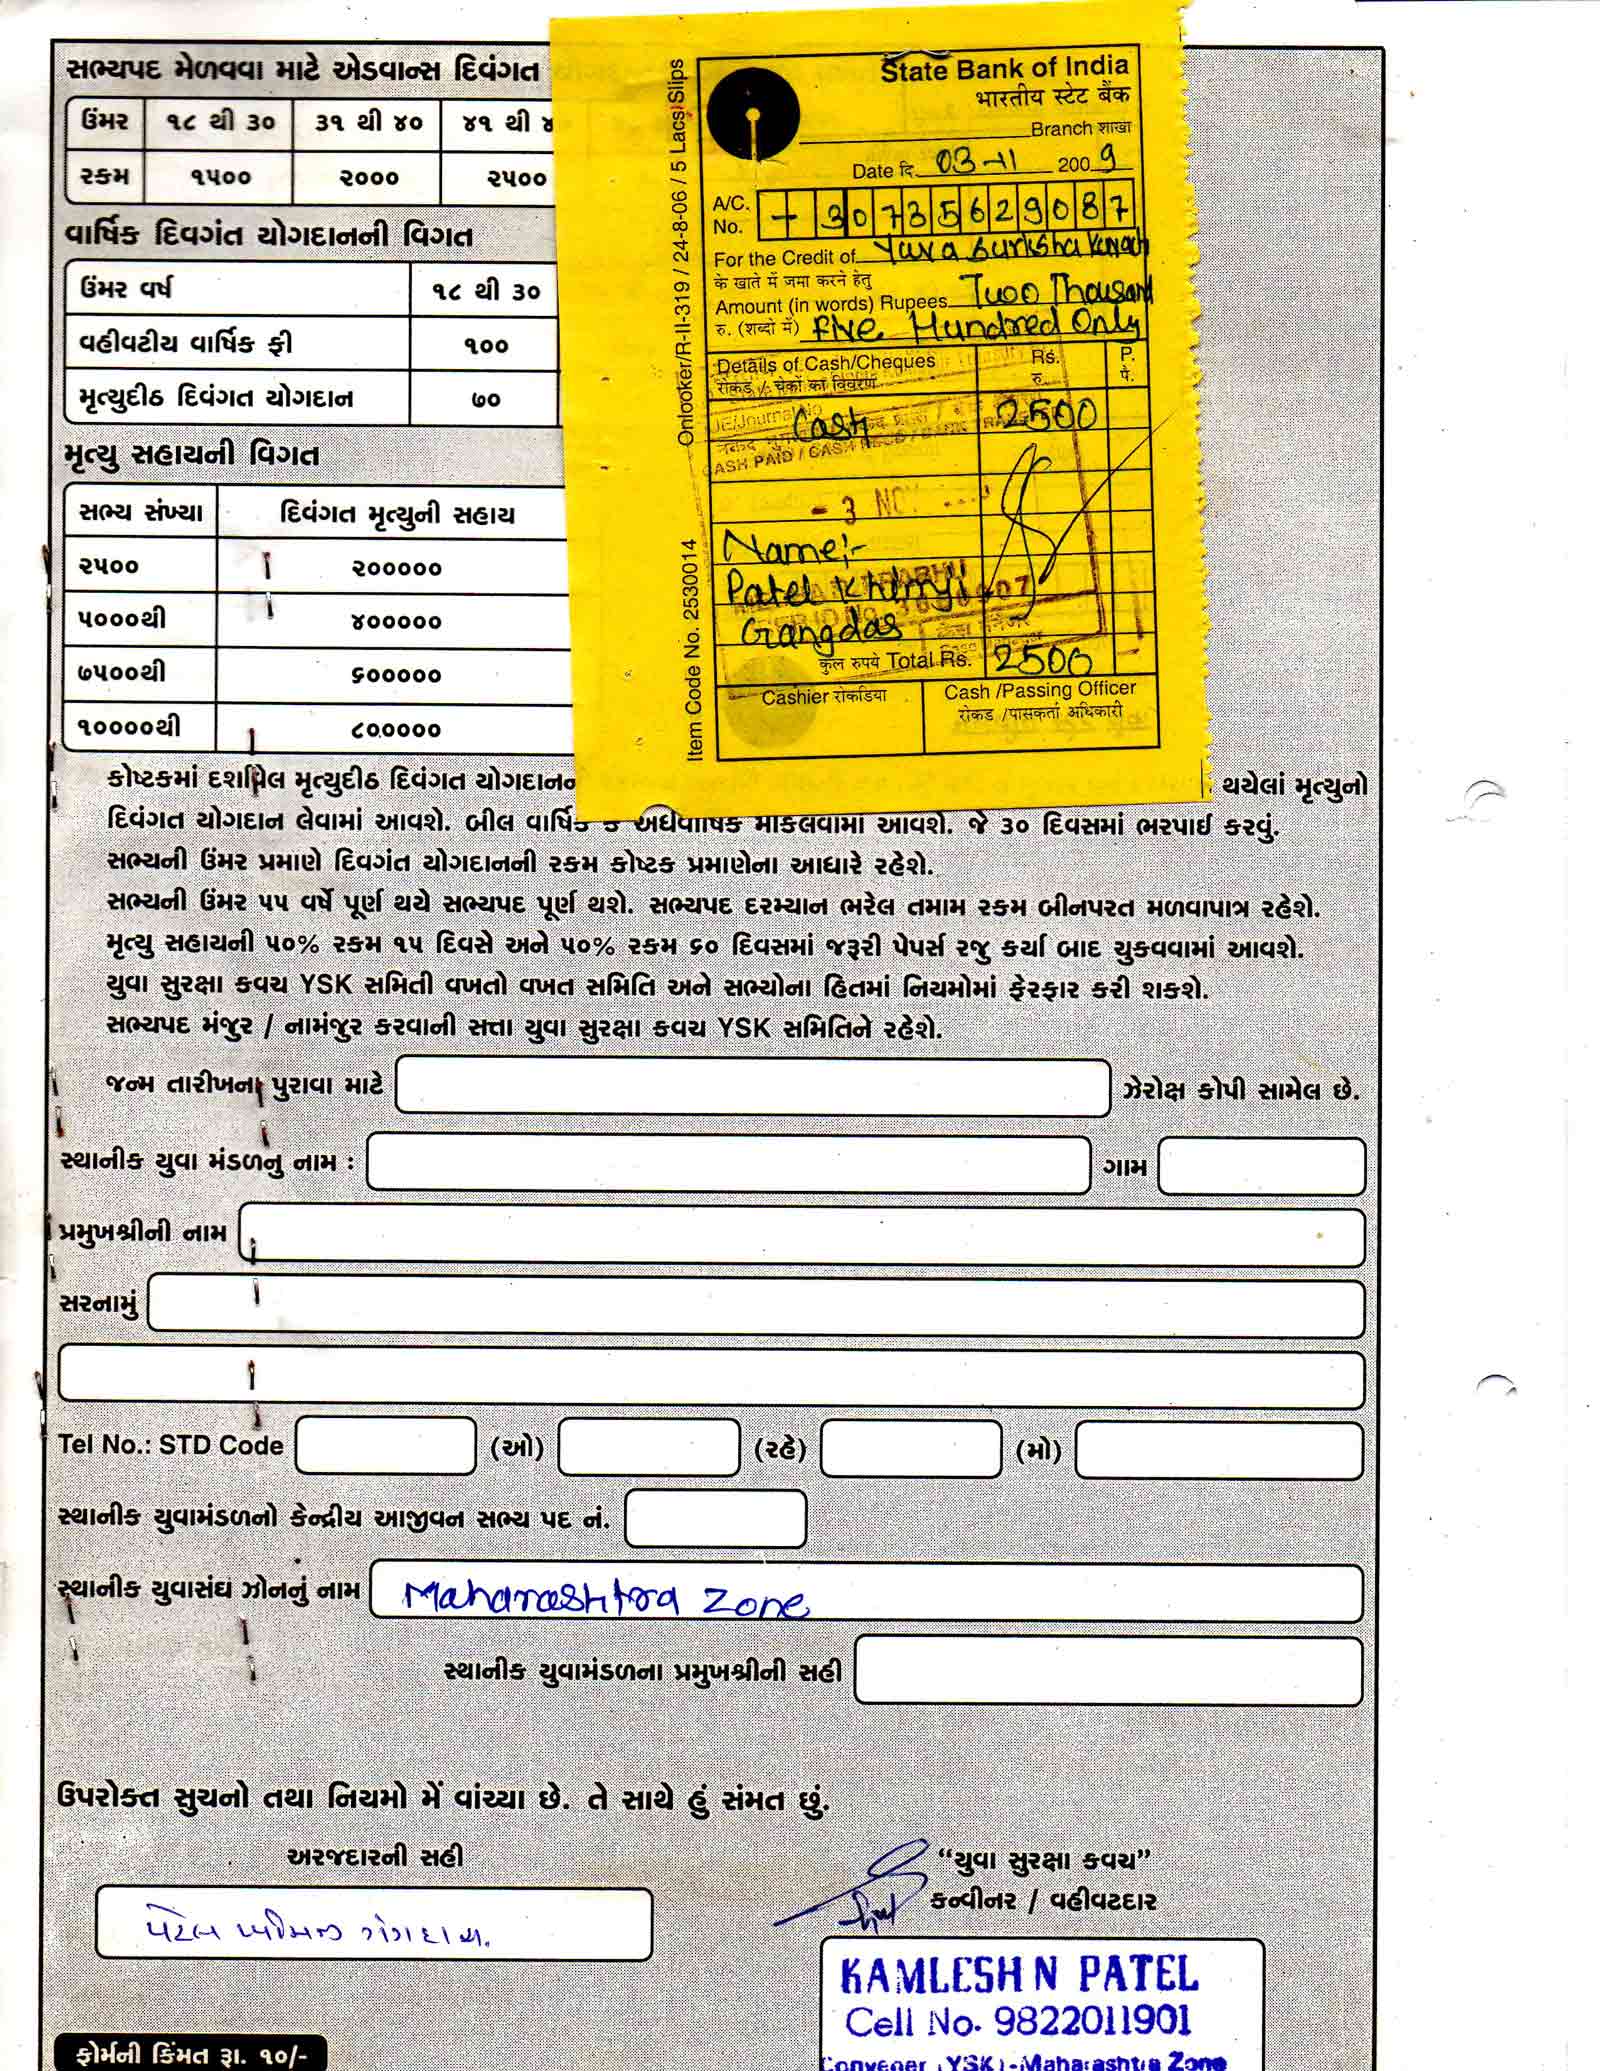 સભ્યપદ મેળવવા માટે એડવાન્સ દિવંગત
ઉંમર ૧૮ થી ૩૦ ૩૧ થી ૪૦ ૪૧ થી
રકમ ૧૫૦૦ ૨૦૦૦ ૨૫૦૦
વાર્ષિક દિવગંત યોગદાનની વિગત
ઉંમર વર્ષ ૧૮ થી ૩૦
વહીવટીય વાર્ષિક ફી ૧૦૦
મૃત્યુદીઠ દિવંગત યોગદાન ૭૦
મૃત્યુ સહાયની વિગત
સભ્ય સંખ્યા દિવંગત મૃત્યુની સહાય
૨૫૦૦ ૨૦૦૦૦૦
૫૦૦૦થી ૪૦૦૦૦૦
૭૫૦૦થી ૬૦૦૦૦૦
૧૦૦૦૦થી ૮૦૦૦૦૦
Onlooker/R-II-319 / 24-8-06 / 5 Lacs/Slips
Item Code No. 2530014
State Bank of India
भारतीय स्टेट बैंक
Branch शाखा
Date दि. 03-11 2009
A/C. No. - 30735629087
For the Credit of Yuva Surksha Kavach
के खाते में जमा करने हेतु
Amount (in words) Rupees Two Thousand
रु. (शब्दो में) Five Hundred Only
Details of Cash/Cheques Rs. P.
रोकड / चेकों का विवरण रु. पै.
JE/Journal No
Cash 2500
CASH PAID / CASH RECD /
- 3 NOV
Name:-
Patel Khimji
Gangdas
कुल रुपये Total Rs. 2500
Cashier रोकडिया Cash /Passing Officer
रोकड /पासकर्ता अधिकारी
કોષ્ટકમાં દર્શાવેલ મૃત્યુદીઠ દિવંગત થયેલાં મૃત્યુનો
દિવંગત યોગદાન લેવામાં આવશે. બીલ વાર્ષિક કે અર્ધવાર્ષિક મોકલવામાં આવશે. જે ૩૦ દિવસમાં ભરપાઈ કરવું.
સભ્યની ઉંમર પ્રમાણે દિવગંત યોગદાનની રકમ કોષ્ટક પ્રમાણેના આધારે રહેશે.
સભ્યની ઉંમર ૫૫ વર્ષે પૂર્ણ થયે સભ્યપદ પૂર્ણ થશે. સભ્યપદ દરમ્યાન ભરેલ તમામ રકમ બીનપરત મળવાપાત્ર રહેશે.
મૃત્યુ સહાયની ૫૦% રકમ ૧૫ દિવસે અને ૫૦% રકમ ૬૦ દિવસમાં જરૂરી પેપર્સ રજુ કર્યા બાદ ચુકવવામાં આવશે.
યુવા સુરક્ષા કવચ YSK સમિતી વખતો વખત સમિતિ અને સભ્યોના હિતમાં નિયમોમાં ફેરફાર કરી શકશે.
સભ્યપદ મંજુર / નામંજુર કરવાની સત્તા યુવા સુરક્ષા કવચ YSK સમિતિને રહેશે.
જન્મ તારીખના પુરાવા માટે ઝેરોક્ષ કોપી સામેલ છે.
સ્થાનીક યુવા મંડળનુ નામ : ગામ
પ્રમુખશ્રીની નામ
સરનામું
Tel No.: STD Code (ઓ) (રહે) (મો)
સ્થાનીક યુવામંડળનો કેન્દ્રીય આજીવન સભ્ય પદ નં.
સ્થાનીક યુવાસંઘ ઝોનનું નામ Maharashtra Zone
સ્થાનીક યુવામંડળના પ્રમુખશ્રીની સહી
ઉપરોક્ત સુચનો તથા નિયમો મેં વાંચ્યા છે. તે સાથે હું સંમત છું.
અરજદારની સહી
પટેલ ખીમજી ગંગદાસ.
“યુવા સુરક્ષા કવચ”
કન્વીનર / વહીવટદાર
KAMLESH N PATEL
Cell No. 9822011901
Convener (YSK)-Maharashtra Zone
ફોર્મની કિંમત રૂા. ૧૦/-